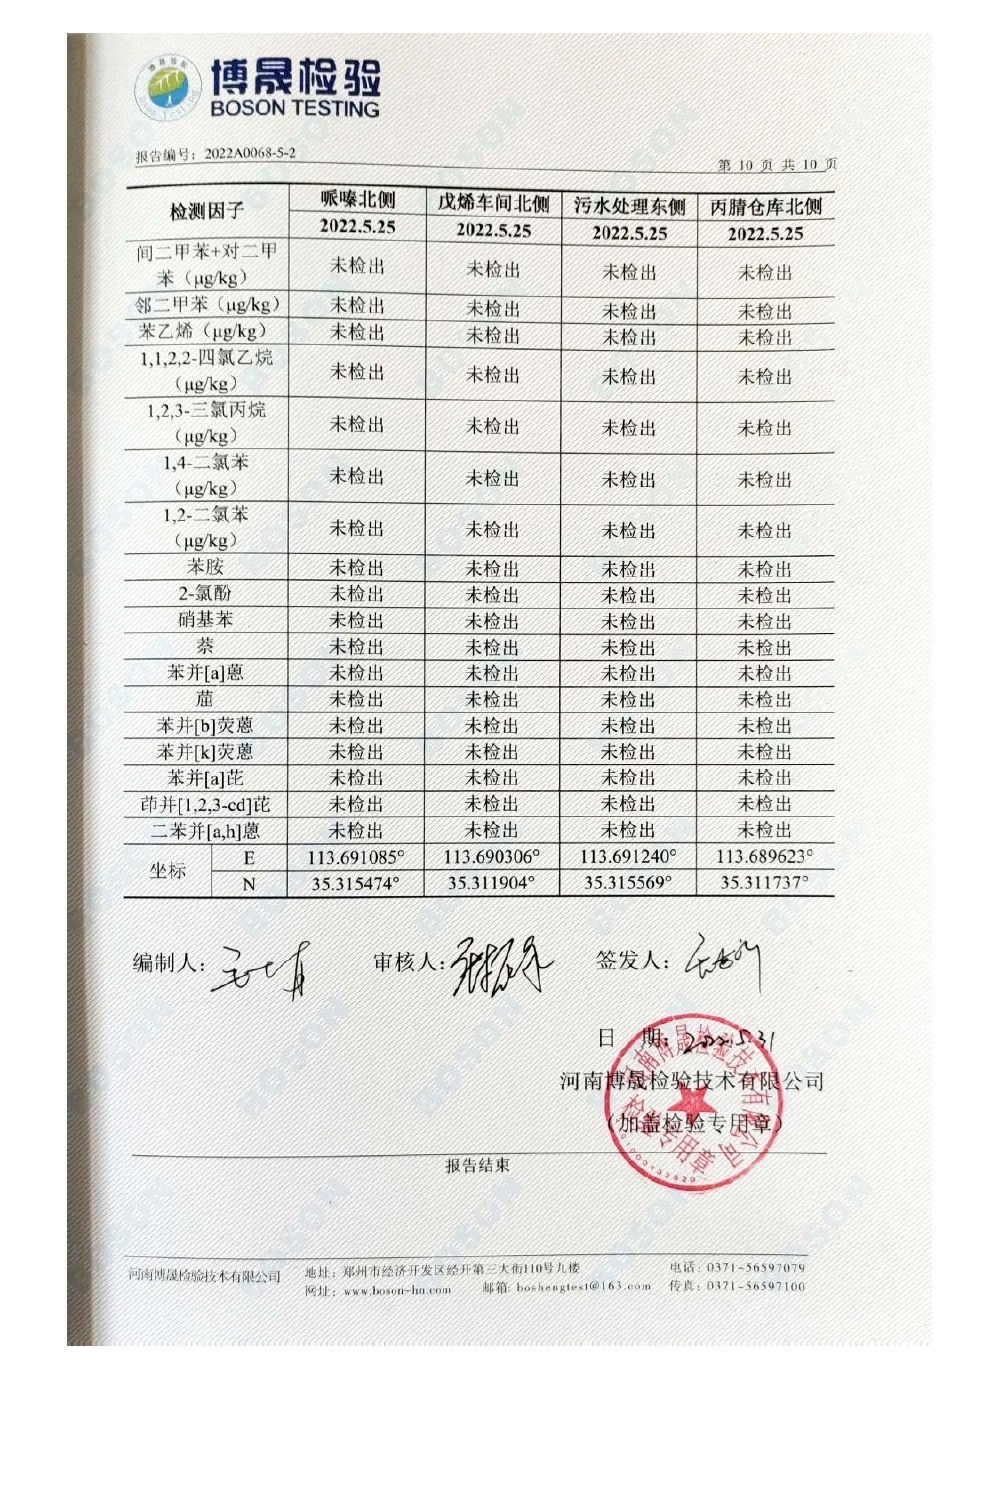 博晟检验
BOSON TESTING
报告编号：2022A0068-5-2
第 10 页 共 10 页
检测因子 哌嗪北侧 戊烯车间北侧 污水处理东侧 丙腈仓库北侧
2022.5.25 2022.5.25 2022.5.25 2022.5.25
间二甲苯+对二甲
苯（μg/kg） 未检出 未检出 未检出 未检出
邻二甲苯（μg/kg） 未检出 未检出 未检出 未检出
苯乙烯（μg/kg） 未检出 未检出 未检出 未检出
1,1,2,2-四氯乙烷
（μg/kg） 未检出 未检出 未检出 未检出
1,2,3-三氯丙烷
（μg/kg） 未检出 未检出 未检出 未检出
1,4-二氯苯
（μg/kg） 未检出 未检出 未检出 未检出
1,2-二氯苯
（μg/kg） 未检出 未检出 未检出 未检出
苯胺 未检出 未检出 未检出 未检出
2-氯酚 未检出 未检出 未检出 未检出
硝基苯 未检出 未检出 未检出 未检出
萘 未检出 未检出 未检出 未检出
苯并[a]蒽 未检出 未检出 未检出 未检出
䓛 未检出 未检出 未检出 未检出
苯并[b]荧蒽 未检出 未检出 未检出 未检出
苯并[k]荧蒽 未检出 未检出 未检出 未检出
苯并[a]芘 未检出 未检出 未检出 未检出
茚并[1,2,3-cd]芘 未检出 未检出 未检出 未检出
二苯并[a,h]蒽 未检出 未检出 未检出 未检出
坐标 E 113.691085° 113.690306° 113.691240° 113.689623°
N 35.315474° 35.311904° 35.315569° 35.311737°
编制人： 审核人： 签发人：
日 期：2022.5.31
河南博晟检验技术有限公司
（加盖检验专用章）
报告结束
河南博晟检验技术有限公司 地址：郑州市经济开发区经开第三大街110号九楼 电话：0371-56597079
网址：www.boson-hn.com 邮箱: boshengtest@163.com 传真：0371-56597100